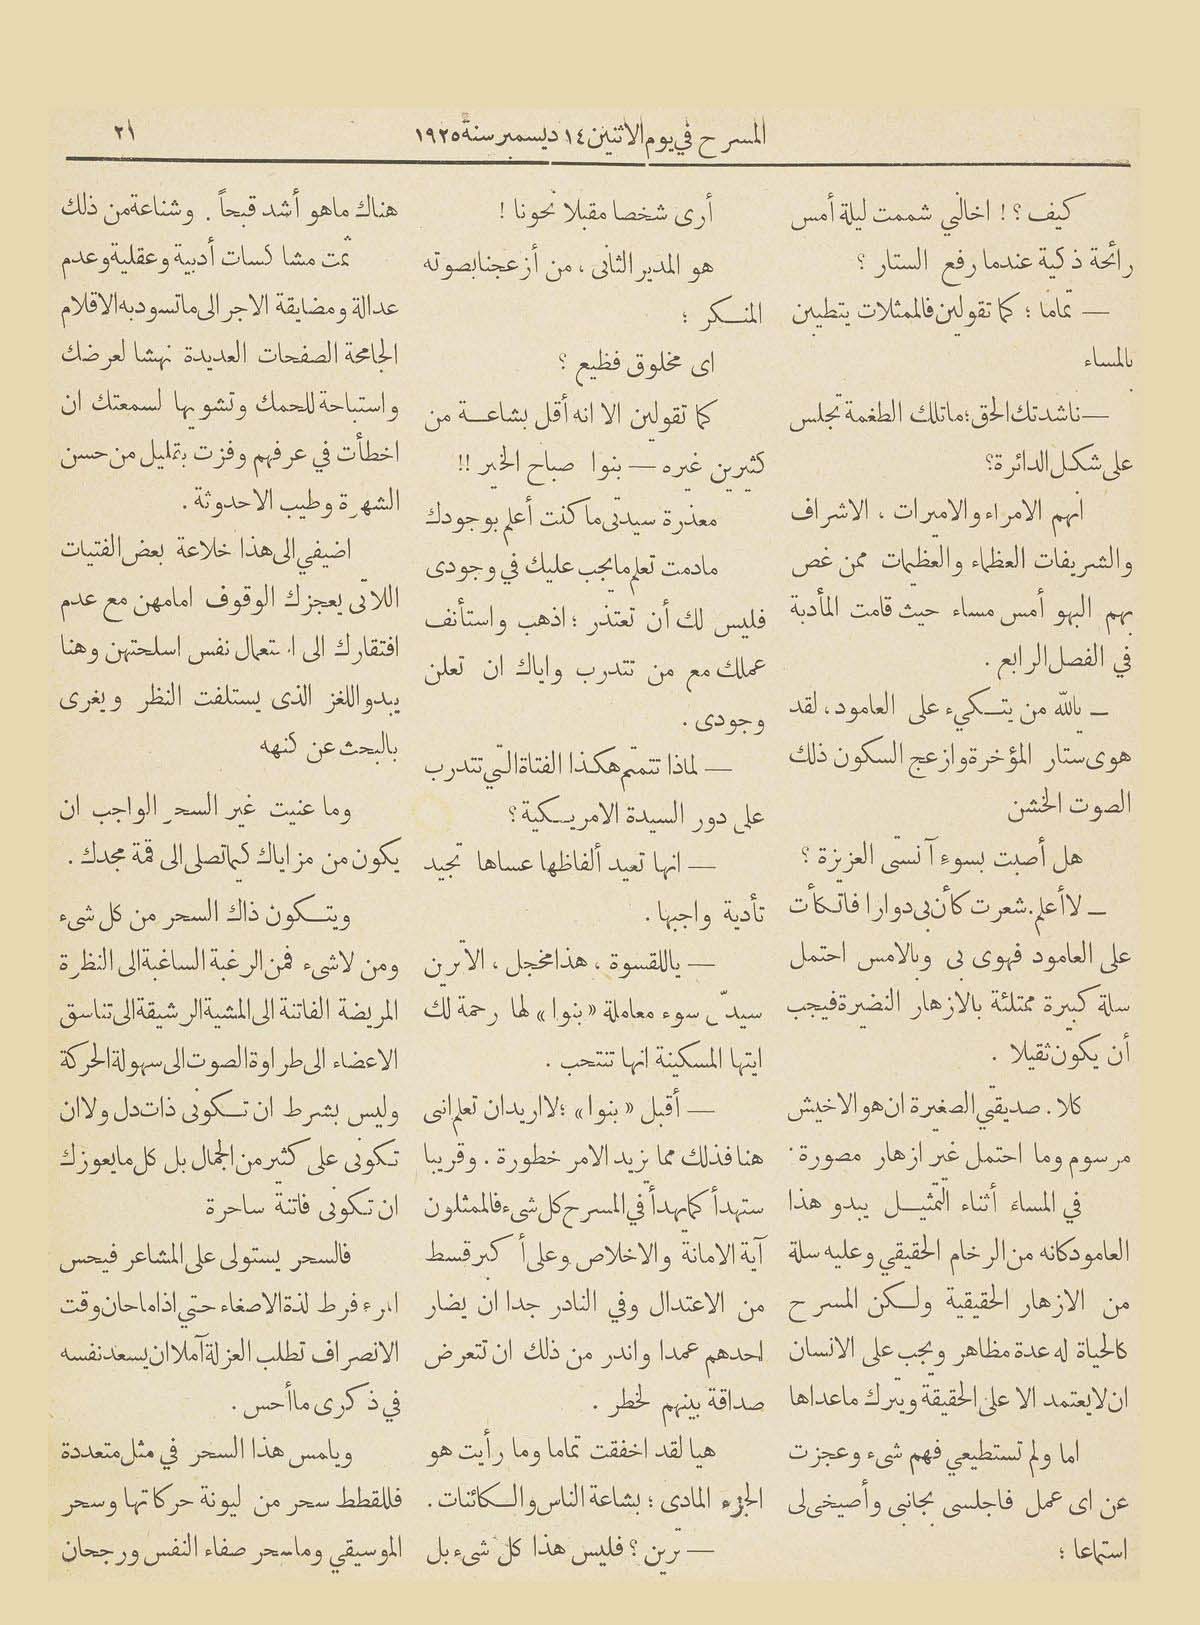 المسرح في يوم الاثنين ١٤ ديسمبر سنة ١٩٢٥
٢١
كيف ؟ ! اخالني شممت ليلة أمس
رائحة ذكية عندما رفع الستار ؟
— تماما ؛ كما تقولين فالممثلات يتطيبن
بالمساء
— ناشدتك الحق ؛ ماتلك الطغمة تجلس
على شكل الدائرة ؟
انهم الامراء والاميرات ، الاشراف
والشريفات العظماء والعظيمات ممن غص
بهم البهو أمس مساء حيث قامت المأدبة
في الفصل الرابع .
— بالله من يتكيء على العامود ، لقد
هوى ستار المؤخرة وازعج السكون ذلك
الصوت الخشن
هل أصبت بسوء آنستى العزيزة ؟
— لا أعلم . شعرت كأن بى دوارا فاتكأت
على العامود فهوى بى وبالامس احتمل
سلة كبيرة ممتلئة بالازهار النضيرة فيجب
أن يكون ثقيلا .
كلا . صديقتي الصغيرة ان هو الا خيش
مرسوم وما احتمل غير ازهار مصورة .
في المساء أثناء التمثيل يبدو هذا
العامود كانه من الرخام الحقيقي وعليه سلة
من الازهار الحقيقية ولكن المسرح
كالحياة له عدة مظاهر ويجب على الانسان
ان لا يعتمد الا على الحقيقة ويترك ماعداها
اما ولم تستطيعي فهم شىء وعجزت
عن اى عمل فاجلسى بجانبى وأصيخى لى
استماعا :
أرى شخصا مقبلا نحونا !
هو المدير الثانى ، من أزعجنا بصوته
المنكر ؛
اى مخلوق فظيع ؟
كما تقولين الا انه أقل بشاعة من
كثيرين غيره — بنوا صباح الخير !!
معذرة سيدتى ما كنت أعلم بوجودك
مادمت تعلم مايجب عليك في وجودى
فليس لك أن تعتذر ؛ اذهب واستأنف
عملك مع من تتدرب واياك ان تعلن
وجودى .
— لماذا تتمتم هكذا الفتاة التي تتدرب
على دور السيدة الامريكية ؟
— انها تعيد ألفاظها عساها تجيد
تأدية واجبها .
— ياللقسوة ، هذا مخجل ، الا ترين
سيدتى سوء معاملة « بنوا » لها رحمة لك
ايتها المسكينة انها تنتحب .
— أقبل « بنوا » ؛ لا اريد ان تعلم انى
هنا فذلك مما يزيد الامر خطورة . وقريبا
ستهدأ كما يهدأ في المسرح كل شىء فالممثلون
آية الامانة والاخلاص وعلى أكبر قسط
من الاعتدال وفي النادر جدا ان يضار
احدهم عمدا واندر من ذلك ان تتعرض
صداقة بينهم لخطر .
هيا لقد اخفقت تماما وما رأيت هو
الجزء المادى ؛ بشاعة الناس والكائنات .
— ترين ؟ فليس هذا كل شىء بل
هناك ماهو أشد قبحاً . وشناعة من ذلك
ثمت مشاكسات أدبية وعقلية وعدم
عدالة ومضايقة الاجر الى ماتسود به الاقلام
الجامحة الصفحات العديدة نهشا لعرضك
واستباحة للحمك وتشويها لسمعتك ان
اخطأت في عرفهم وفزت بقليل من حسن
الشهرة وطيب الاحدوثة .
اضيفي الى هذا خلاعة بعض الفتيات
اللاتى يعجزك الوقوف امامهن مع عدم
افتقارك الى استعمال نفس اسلحتهن وهنا
يبدو اللغز الذى يستلفت النظر ويغرى
بالبحث عن كنهه
وما عنيت غير السحر الواجب ان
يكون من مزاياك كيما تصلى الى قمة مجدك .
ويتكون ذاك السحر من كل شىء
ومن لاشىء فمن الرغبة الساغبة الى النظرة
المريضة الفاتنة الى المشية الرشيقة الى تناسق
الاعضاء الى طراوة الصوت الى سهولة الحركة
وليس بشرط ان تكونى ذات دل ولا ان
تكونى على كثير من الجمال بل كل مايعوزك
ان تكونى فاتنة ساحرة
فالسحر يستولى على المشاعر فيحس
المرء فرط لذة الاصغاء حتي اذا ماحان وقت
الانصراف تطلب العزلة آملا ان يسعد نفسه
في ذكرى ما أحس .
ويلمس هذا السحر في مثل متعددة
فللقطط سحر من ليونة حركاتها وسحر
الموسيقي وماسحر صفاء النفس ورجحان